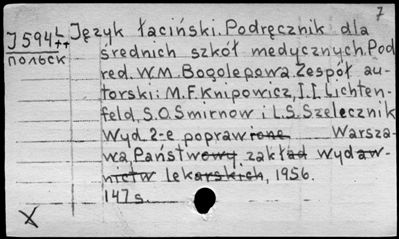 7
J594 L++ Język łaciński. Podręcznik dla
польск średnich szkół medycznych. Pod
red. W.M. Bogolepowa. Zespół au-
torski: M.F. Knipowicz, I.I. Lichten-
feld, S.O. Smirnow i L.S. Szelecznik
Wyd. 2-e poprawione Warsza-
wa, Państwowy zakład wydaw-
nictw lekarskich, 1956.
147 s.
X